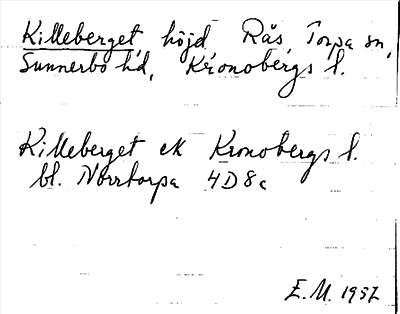 Killeberget höjd Rås, Torpa sn,
Sunnerbo hd, Kronobergs l.
Killeberget ek Kronobergs l.
bl. Norrtorpa 4D8c
E.M. 1957